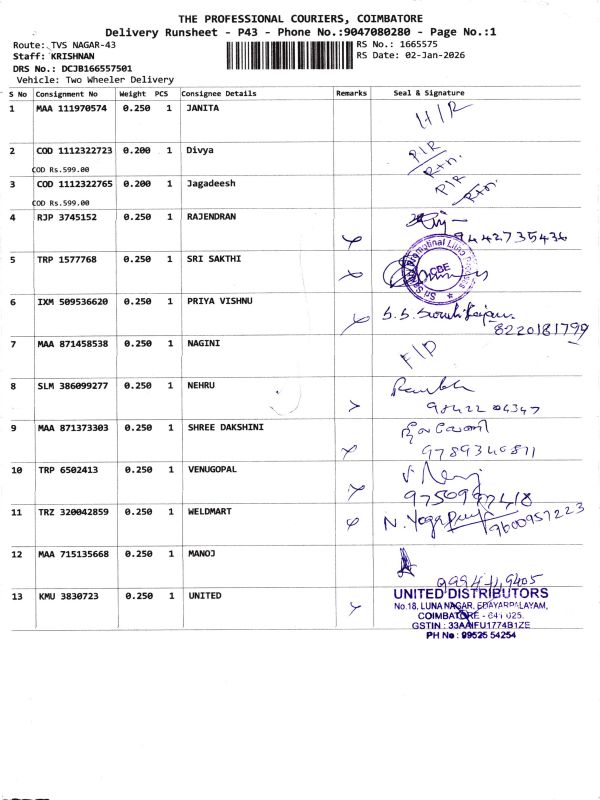 THE PROFESSIONAL COURIERS, COIMBATORE
Delivery Runsheet - P43 - Phone No.:9047080280 - Page No.:1
Route: TVS NAGAR-43
RS No.: 1665575
Staff: KRISHNAN
RS Date: 02-Jan-2026
DRS No.: DCJB166557501
Vehicle: Two Wheeler Delivery
S No Consignment No Weight PCS Consignee Details Remarks Seal & Signature
1 MAA 111970574 0.250 1 JANITA H/R
2 COD 1112322723 0.200 1 Divya P/R
Rtn.
COD Rs.599.00
3 COD 1112322765 0.200 1 Jagadeesh P/R
Rtn.
COD Rs.599.00
4 RJP 3745152 0.250 1 RAJENDRAN
9442735436
5 TRP 1577768 0.250 1 SRI SAKTHI
CBE
6 IXM 509536620 0.250 1 PRIYA VISHNU
8220181799
7 MAA 871458538 0.250 1 NAGINI F/D
8 SLM 386099277 0.250 1 NEHRU
98422 04347
9 MAA 871373303 0.250 1 SHREE DAKSHINI
9789340811
10 TRP 6502413 0.250 1 VENUGOPAL
11 TRZ 320042859 0.250 1 WELDMART
9600957223
12 MAA 715135668 0.250 1 MANOJ
13 KMU 3830723 0.250 1 UNITED
UNITED DISTRIBUTORS
No.18, LUNA NAGAR, EDAYARPALAYAM,
COIMBATORE - 641 025.
GSTIN : 33AAIFU1774B1ZE
PH No : 99525 54254